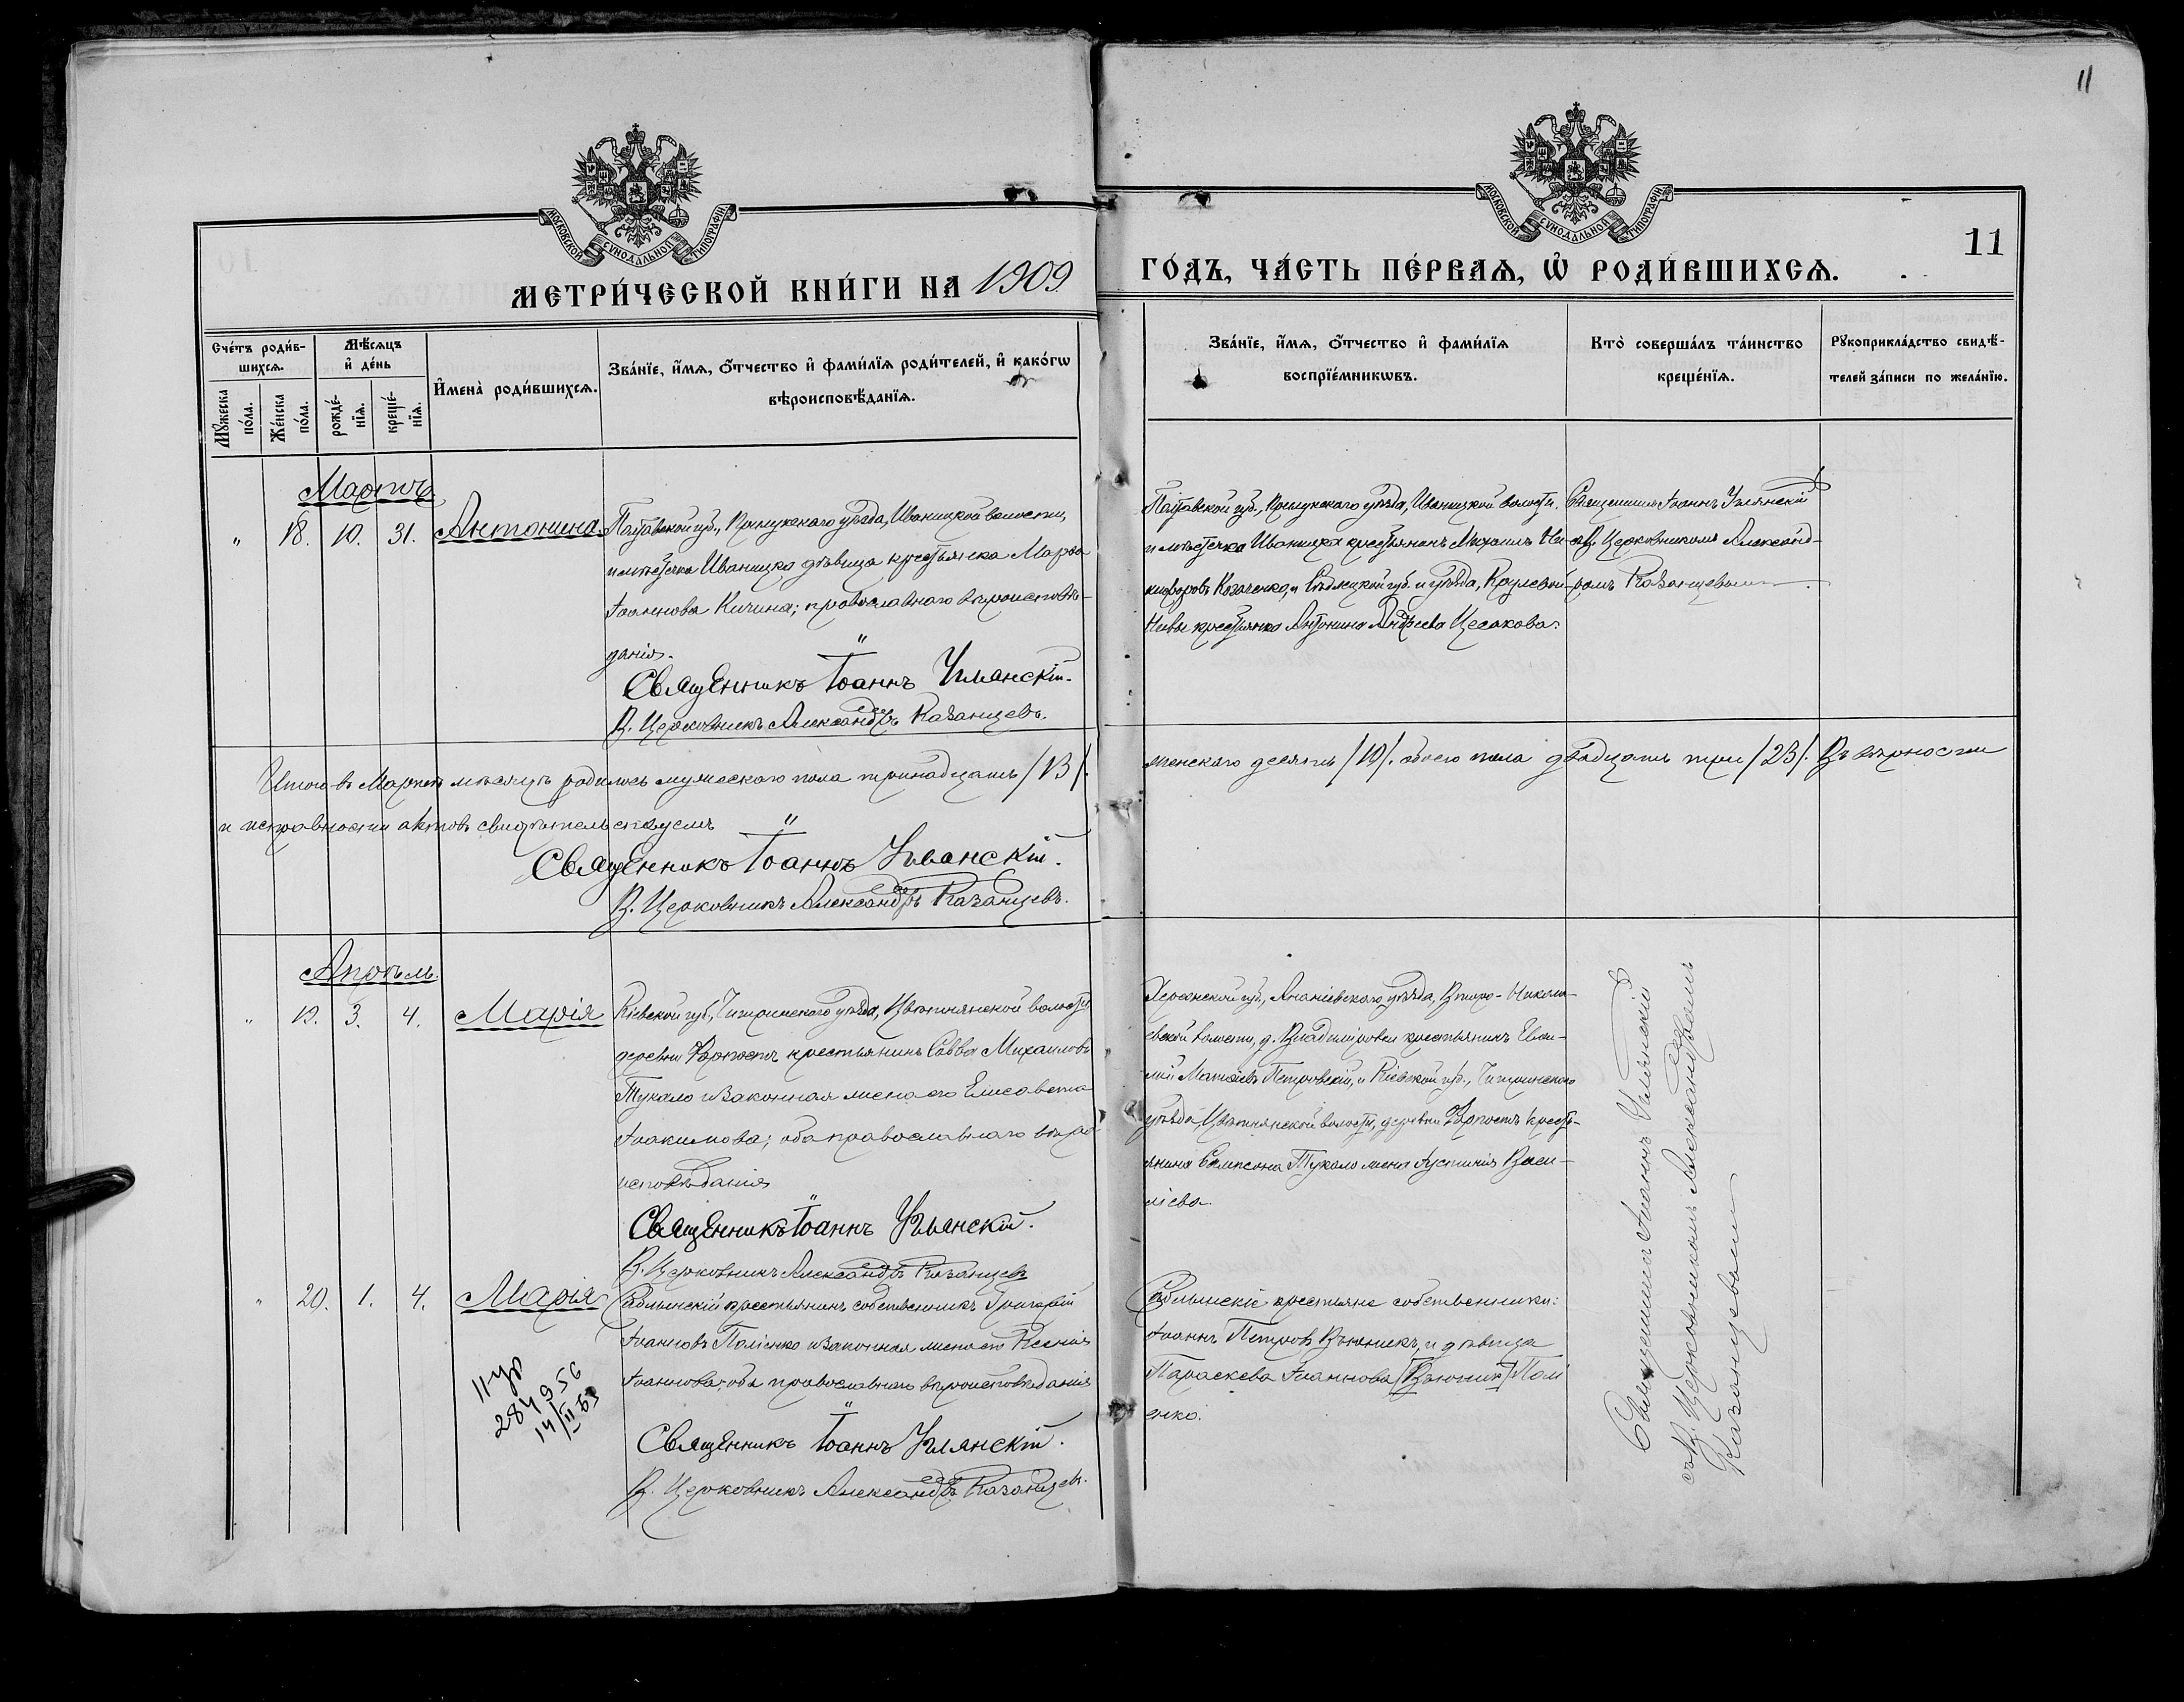 11
11
МОСКОВСКОЙ СѴНОДАЛЬНОЙ ТИПОГРАФІИ
МОСКОВСКОЙ СѴНОДАЛЬНОЙ ТИПОГРАФІИ
МЕТРИ́ЧЕСКОЙ КНИ́ГИ НА 1909
ГО́ДЪ, ЧА́СТЬ ПЕ́РВАѦ, Ѡ҆ РОДИ́ВШИХСѦ.
Сче́тъ роди́в-
шихсѧ.
Мꙋ́жеска
по́ла.
Же́нска
по́ла.
Мѣ́сѧцъ
и҆ де́нь
рожде́-
нїѧ.
креще́-
нїѧ.
И҆мена̀ роди́вшихсѧ.
Зва́нїе, и҆́мѧ, ѻ҆́тчество и҆ фами́лїѧ роди́телей, и҆ како́гѡ
вѣроисповѣ́данїѧ.
Зва́нїе, и҆́мѧ, ѻ҆́тчество и҆ фами́лїѧ
воспрїе́мникѡвъ.
Кто̀ соверша́лъ та́инство
креще́нїѧ.
Рꙋкоприкла́дство свидѣ́-
телей за́писи по жела́нїю.
Мартъ
" 18. 10. 31. Антонина.
Полтавской губ., Прилукскаго уѣзда, Иваницкой волости,
и мѣстечка Иваница дѣвица крестьянка Марѳа
Іоаннова Кичина; православнаго вѣроисповѣ-
данія.
Священникъ Іоаннъ Улянскій.
В. Церковникъ Александръ Казанцевъ.
Полтавской губ., Прилукскаго уѣзда, Иваницкой волости,
и мѣстечка Иваница крестьянинъ Михаилъ Ни-
кифоровъ Козаченко, и Сѣдлецкой губ. и уѣзда,
Нивы крестьянка Антонина Андреева Цесакова.
Священникъ Іоаннъ Улянскій
съ В. Церковникомъ Александ-
ромъ Казанцевымъ.
Итого въ Мартѣ мѣсяцѣ родилось мужескаго пола тринадцать /13/.
женскаго десять /10/. обоего пола двадцать три /23/. Въ вѣрности
и исправности актовъ свидѣтельствуемъ
Священникъ Іоаннъ Улянскій.
В. Церковникъ Александръ Казанцевъ.
Апрѣль.
" 19. 3. 4. Марія
Кіевской губ., Чигиринскаго уѣзда, Цвѣтнянской волости
деревни Форпостъ крестьянинъ Савва Михаиловъ
Тукало и законная жена его Елисавета
Іоакимова; оба православнаго вѣро-
исповѣданія
Священникъ Іоаннъ Улянскій.
В. Церковникъ Александръ Казанцевъ
Херсонской губ., Ананіевскаго уѣзда, Петро-Никола-
евской волости, д. Владиміровки крестьянинъ Евѳи-
мій Матѳіевъ Петровскій, и Кіевской губ., Чигиринскаго
уѣзда, Цвѣтнянской волости, деревни Форпостъ кресть-
янина Сампсона Тукало жена Іустинія Васи-
ліева.
" 20. 1. 4. Марія
Саблинскій крестьянинъ собственникъ Григорій
Іоанновъ Поліенко и законная жена его Ксенія
Іоаннова; оба православнаго вѣроисповѣданія
Священникъ Іоаннъ Улянскій.
В. Церковникъ Александръ Казанцевъ.
284956
14/II 63
Саблинскіе крестьяне собственники:
Іоаннъ Петровъ Вьюникъ, и дѣвица
Параскева Іоаннова /Вьюник/ Полі
енко.
Священникъ Іоаннъ Улянскій
съ В. Церковникомъ Александромъ
Казанцевымъ